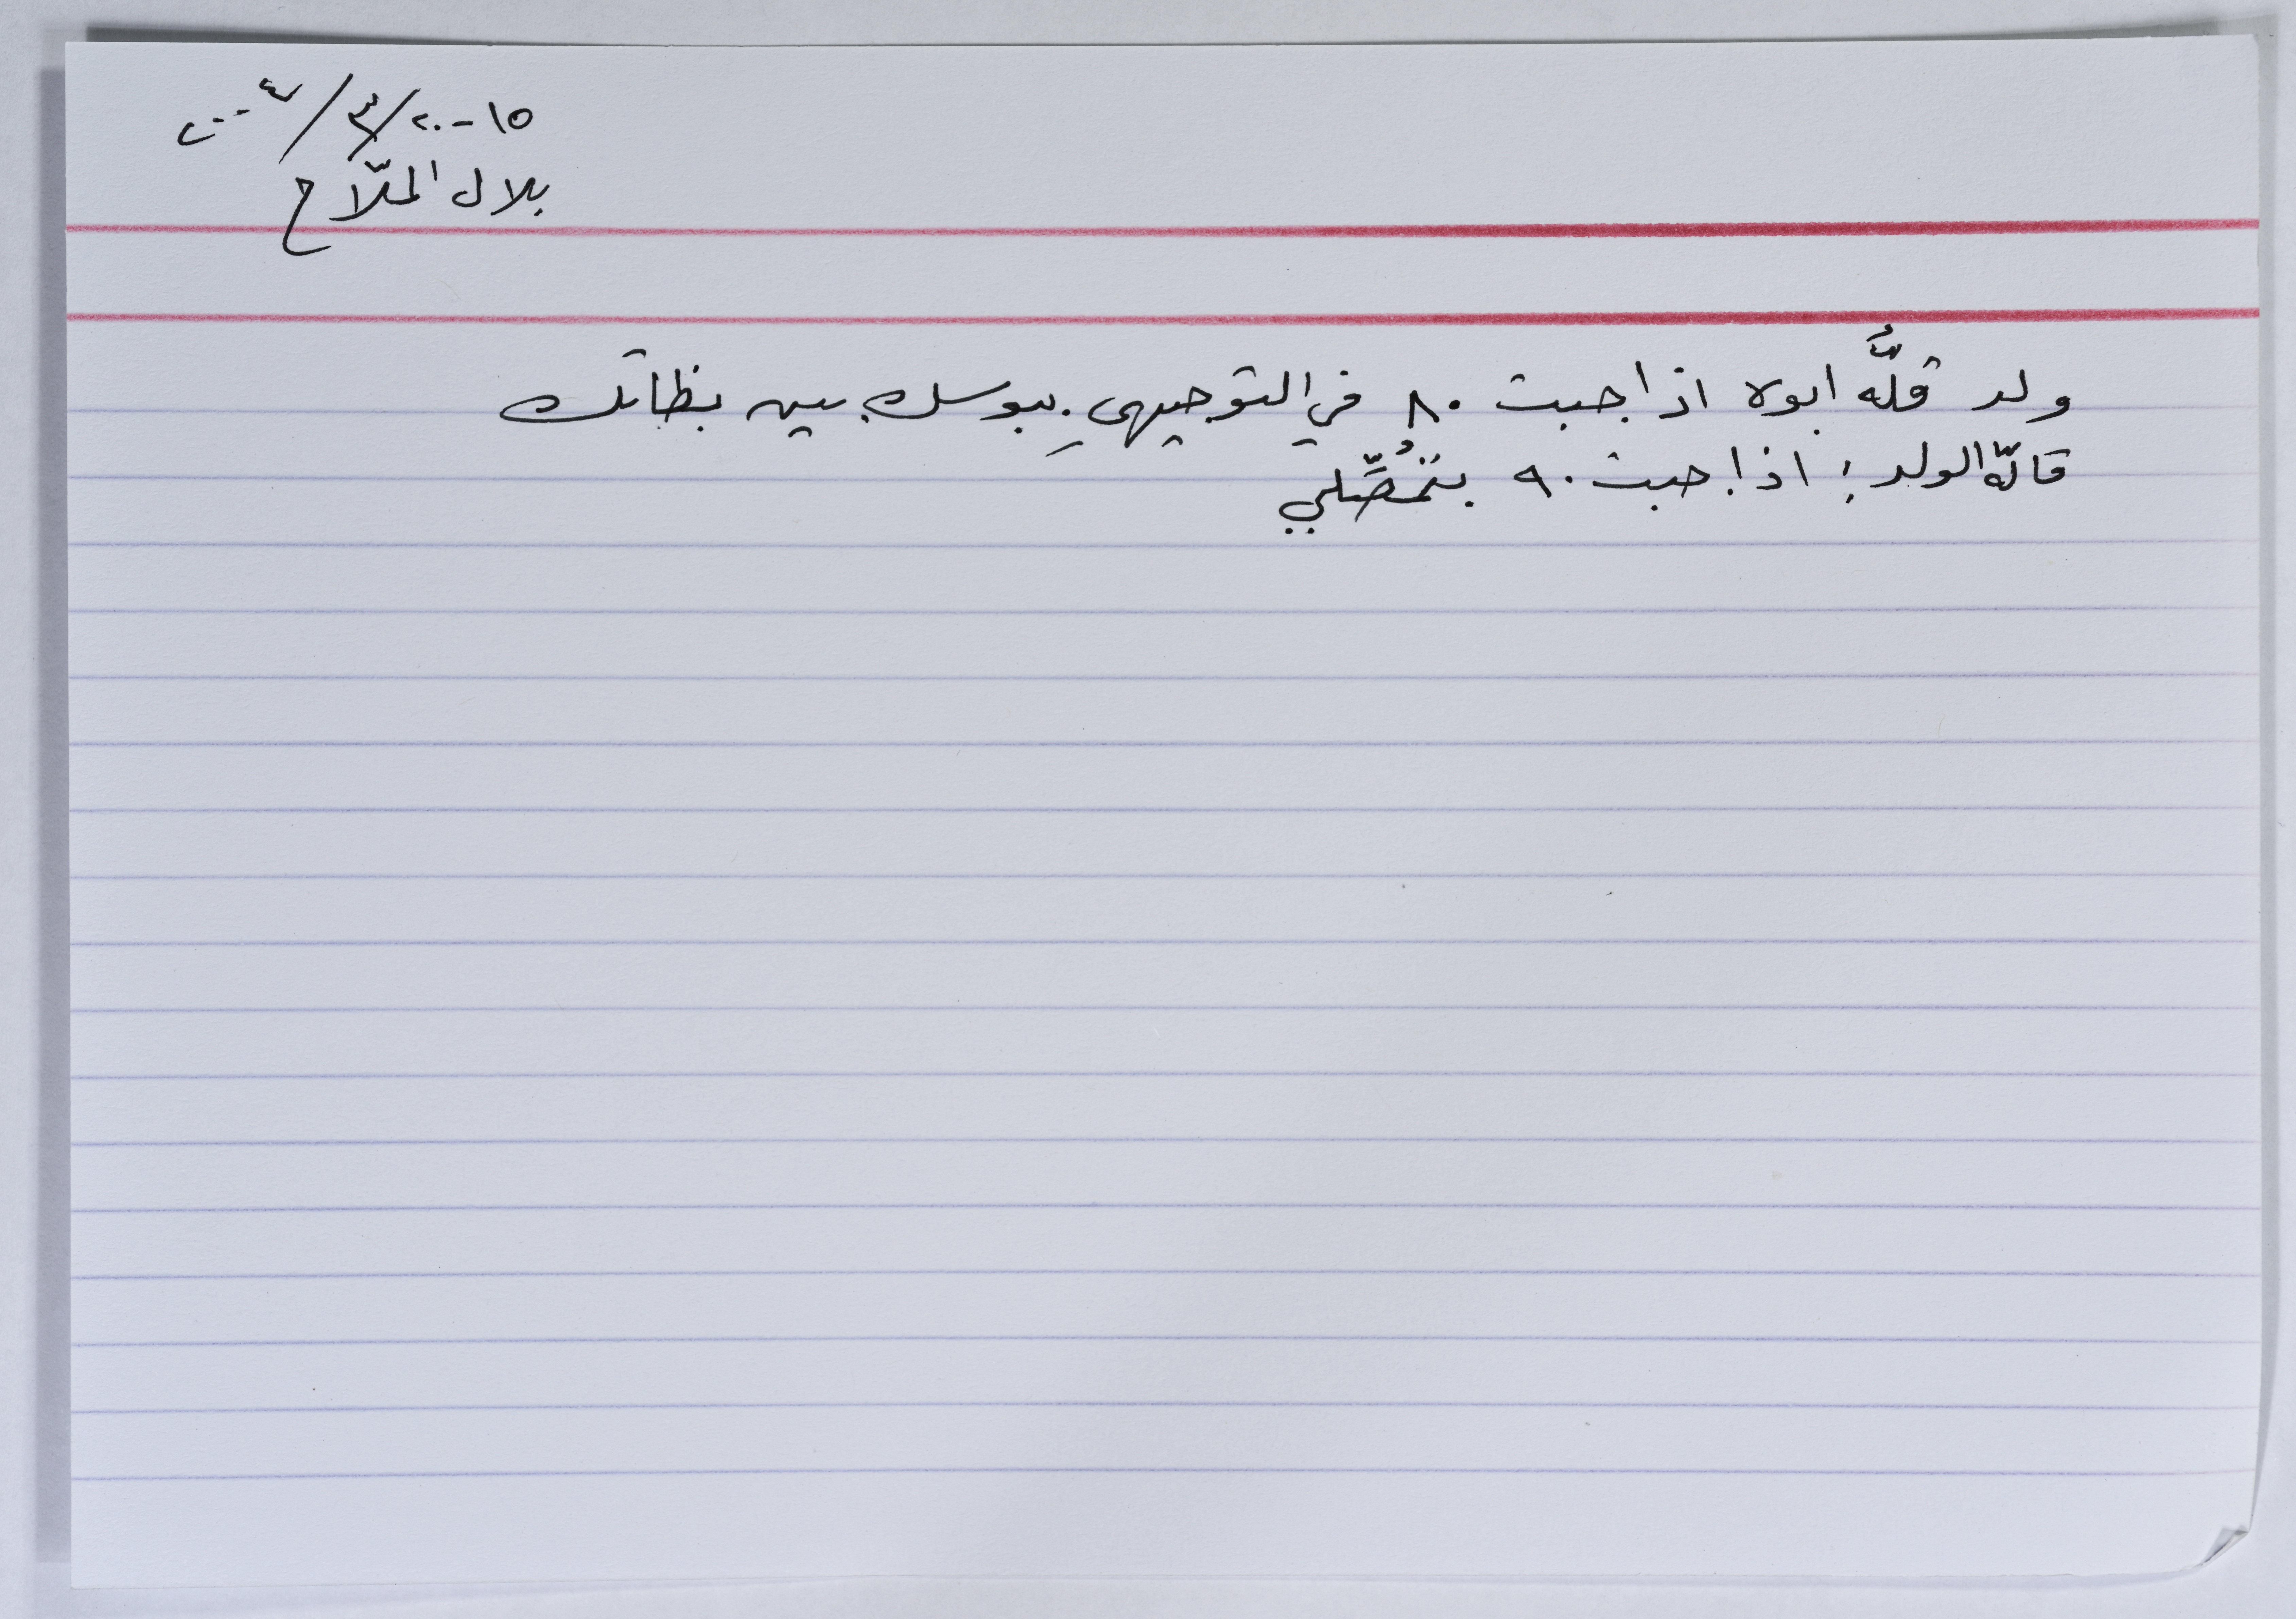 ١٥-٢٠/٣/٢٠٠٤
بلال الملّاح
ولد قلَّه ابوه اذا جبت ٨٠ في التوجيهي ببوسك بين بظاتك
قالّه الولد: اذا جبت ٩٠ بتمُصِّلي